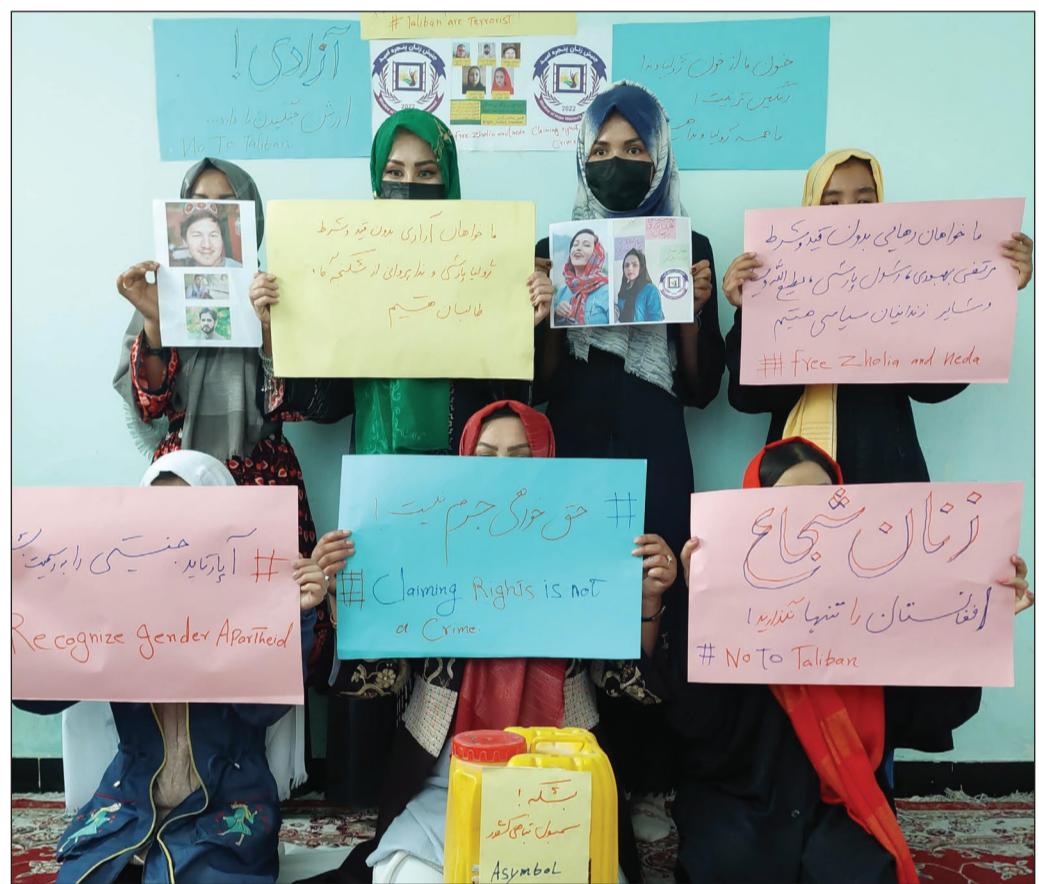 # Taliban are Terrorist!
آزادی!
ارزش جنگیدن را دارد...
No To Taliban
جنبش زنان پنجره امید
2022
جنبش زنان پنجره امید
2022
Free Zholia and neda Claiming
Crime
خون ما از خون ژولیا و ندا
رنگین تر نیست!
ما همه ژولیا و ندا
ما خواهان آزادی بدون قید و شرط
ژولیا پارسی و ندا پروانی از شکنجه گاه
طالبان هستیم
ما خواهان رهایی بدون قید و شرط
مرتضی بهبودی، رسول پارسی، مطیع الله ویسا
و سایر زندانیان سیاسی هستیم
## free Zholia and neda
# آپارتاید جنسیتی را به رسمیت
Recognize gender Apartheid
# حق خواهی جرم نیست!
# Claiming Rights is not
a Crime.
زنان شجاع
افغانستان را تنها نگذارید!
# No To Taliban
بشکه!
سمبول تباهی کشور
Asymbol